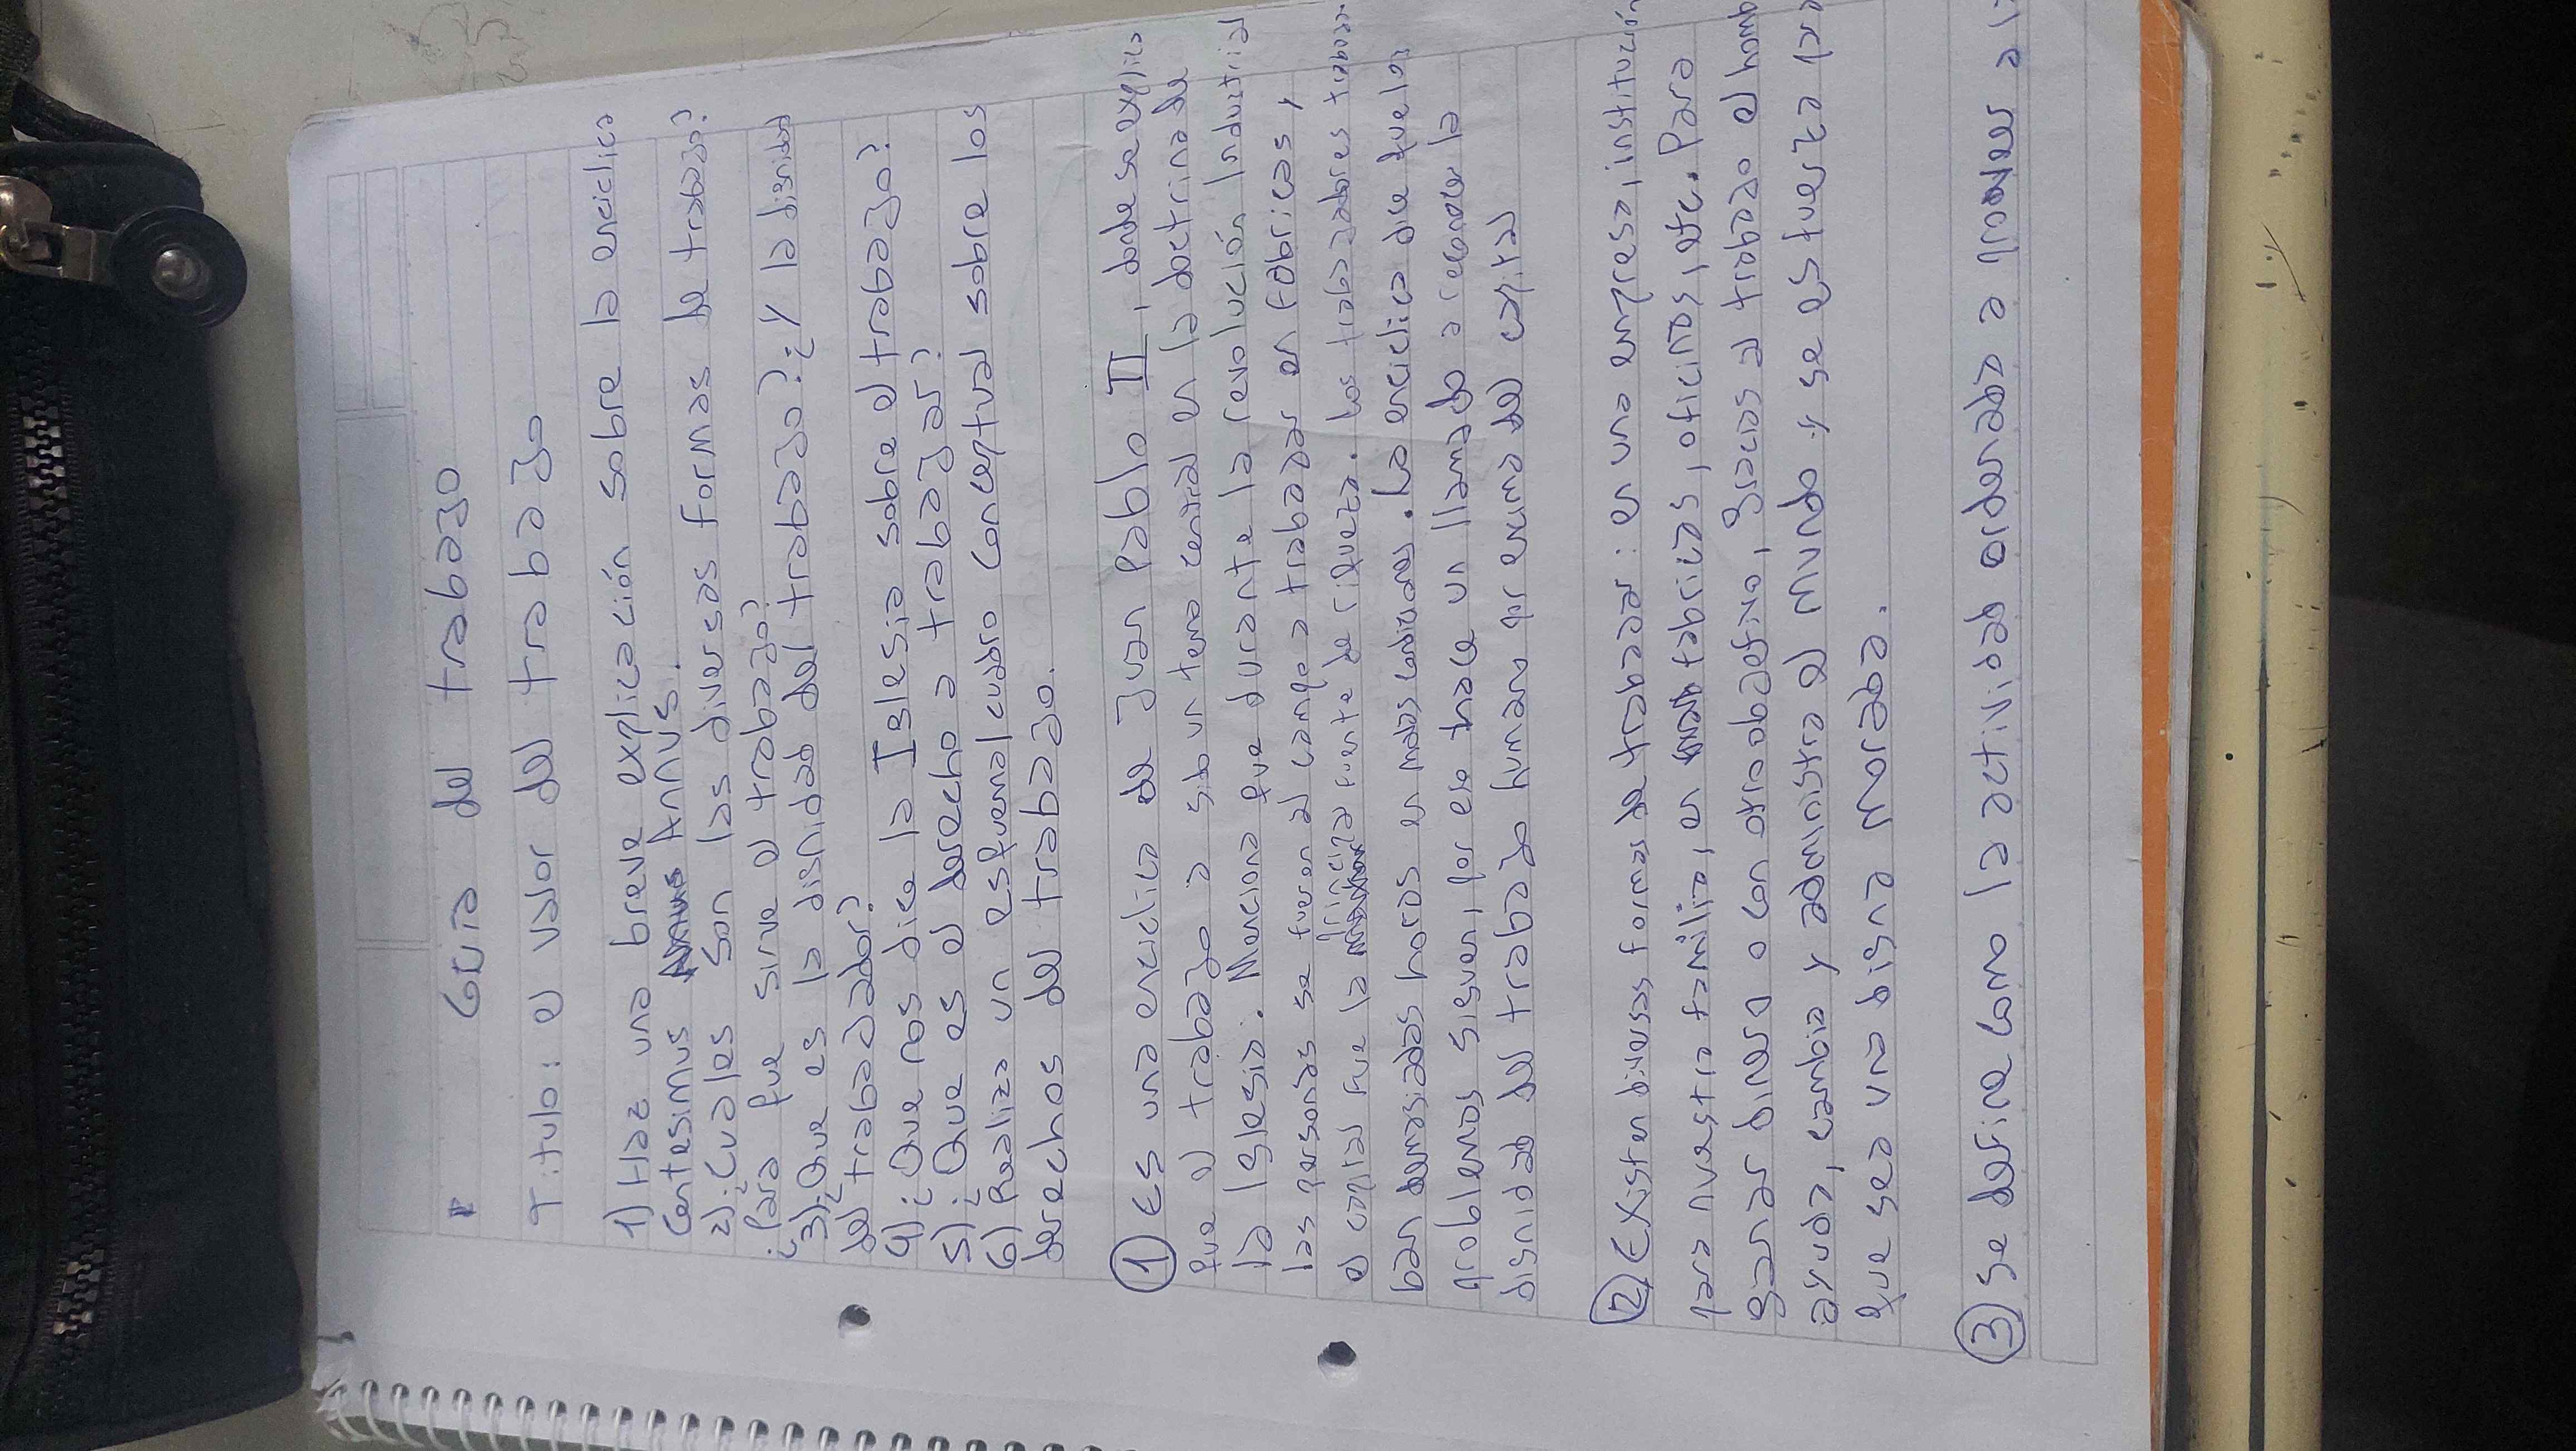 Guia del trabajo
Titulo: el valor del trabajo
1) Haz una breve explicación sobre la enciclica
Centesimus Annus.
2) ¿Cuales son las diversas formas de trabajo?
¿Para que sirve el trabajo?
3) ¿Que es la dignidad del trabajo? ¿Y la dignidad
del trabajador?
4) ¿Que nos dice la Iglesia sobre el trabajo?
5) ¿Que es el derecho a trabajar?
6) Realiza un esquema/cuadro conceptual sobre los
derechos del trabajo.
① Es una enciclica de Juan Pablo II, donde se explica
que el trabajo a sido un tema central en la doctrina de
la Iglesia. Menciona que durante la revolución Industrial
las personas se fueron al campo a trabajar en fábricas, y
el capital fue la principal fuente de riqueza. Los trabajadores trabaja-
ban demasiadas horas en malas condiciones. La enciclica dice que los
problemas siguen, por eso hace un llamado a reconocer la
dignidad del trabajo humano por encima del capital
② Existen diversas formas de trabajar: en una empresa, institución
para nuestra familia, en fabricas, oficinas, etc. Para
ganar dinero o con otro objetivo, gracias al trabajo el homb
ayuda, cambia y administra el mundo y se esfuerza para
que sea una digna morada.
③ Se define como la actividad ordenada a proveer a l